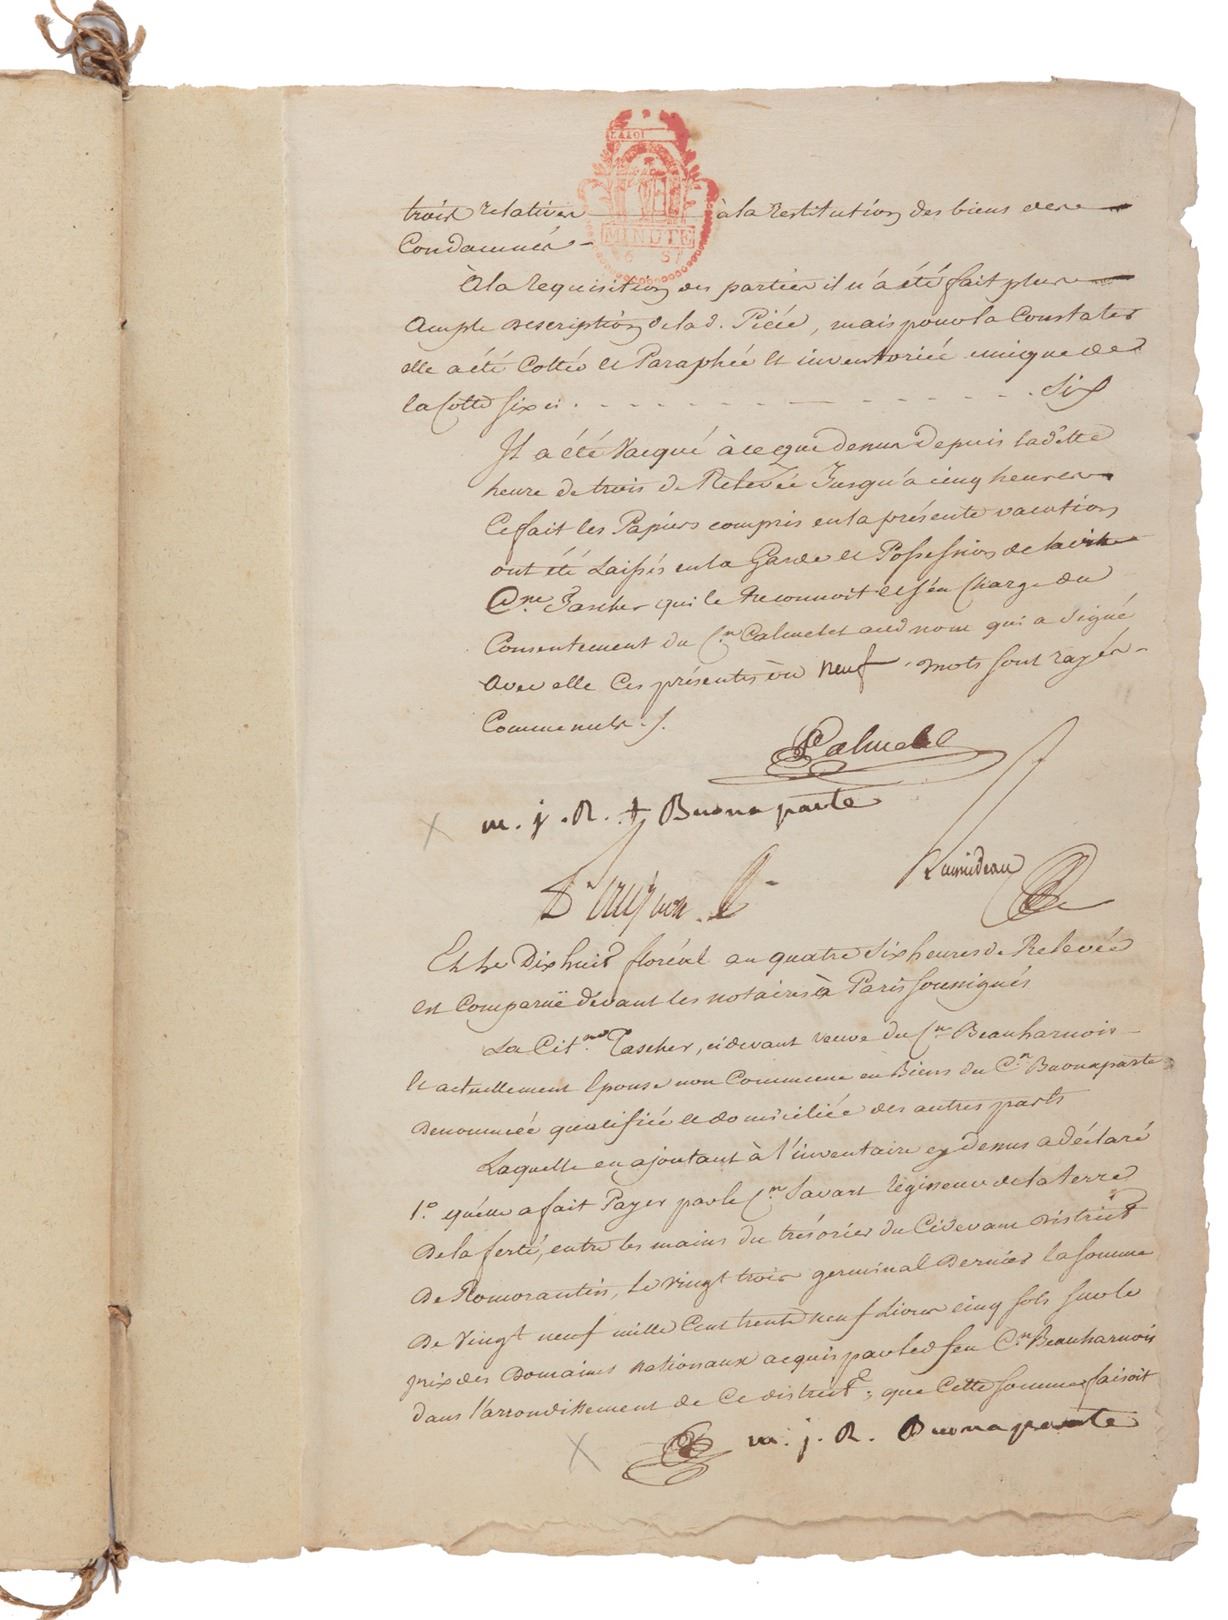 LA LOI
MINUTE
6 S
trois relatives à la Restitution des biens des
Condamnés.
À la Requisition des parties il n'a été fait plus
Ample description de lad. Piéce, mais pour la Constater
elle a été Cottée et Paraphée et inventoriée unique de
la Cotte six ci . . . . . . . . . . . Six
Il a été Vacqué à ce que dessus Depuis lad. ette
heure de trois de Relevée Jusqu'à cinq heures
Ce fait les Papiers compris en la présente vacation
ont été Laissés en la Garde et Possession de la dite
C.ne Tascher qui le Reconnoit et s'en Charge du
Consentement du C.n Calmelet aud nom qui a signé
Avec elle Ces présentes où neuf mots sont rayés
Comme nuls ./.
Calmelet
m. j. R. t Buonaparte
Raguideau
Et le Dix huit floréal an quatre Six heures de Relevée
est Comparuë devant les notaires à Paris soussignés
La Cit.ne Tascher, cidevant veuve du C.n Beauharnois
et actuellement Epouse non Commune en Biens du C.n Buonaparte
Denommée qualifiée et domiciliée des autres parts
Laquelle en ajoutant à l'inventaire cy Dessus a déclaré
1.o qu'elle a fait Payer par le C.n Savart régisseur de la terre
De la ferté, entre les mains du trésorier du Cidevant District
De Romorantin, Le Vingt trois germinal Dernier la somme
De Vingt neuf mille Cent trente neuf Livres cinq sols sur le
prix des Domaines nationaux acquis par led feu C.n Beauharnois
dans l'arrondissement de Ce district ; que Cette somme faisoit
m. j. R. Buonaparte